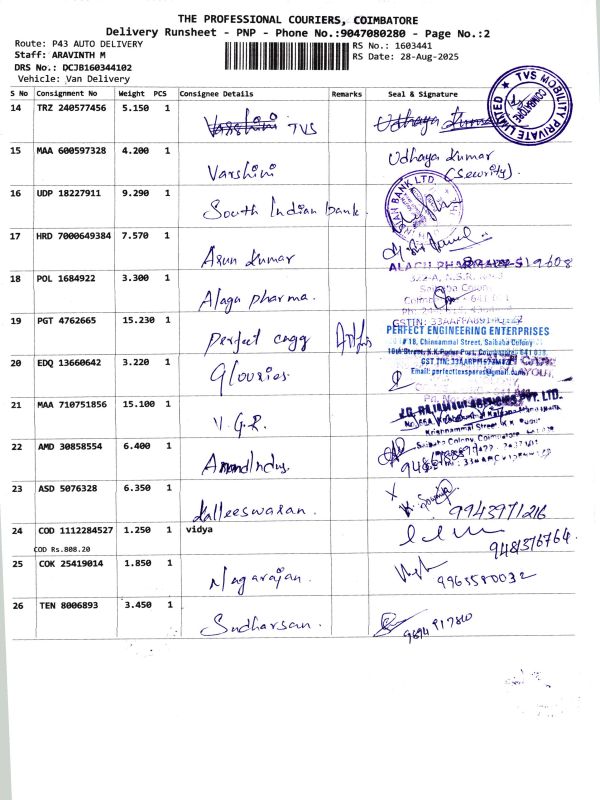 THE PROFESSIONAL COURIERS, COIMBATORE
Delivery Runsheet - PNP - Phone No.:9047080280 - Page No.:2
Route: P43 AUTO DELIVERY
RS No.: 1603441
Staff: ARAVINTH M
RS Date: 28-Aug-2025
DRS No.: DCJB160344102
Vehicle: Van Delivery
S No Consignment No Weight PCS Consignee Details Remarks Seal & Signature
14 TRZ 240577456 5.150 1
Varshini TVS Udhaya Kumar
TVS MOBILITY PRIVATE LIMITED COIMBATORE
15 MAA 600597328 4.200 1
Varshini Udhaya Kumar
(Sewrity).
16 UDP 18227911 9.290 1
South Indian bank.
INDIAN BANK LTD.
17 HRD 7000649384 7.570 1
Arun Kumar
18 POL 1684922 3.300 1
Alagu pharma.
19 PGT 4762665 15.230 1
Perfect engg
PERFECT ENGINEERING ENTERPRISES
# 18, Chinnammal Street, Saibaba Colony
20 EDQ 13660642 3.220 1
Glouries
21 MAA 710751856 15.100 1
V.G.R.
Krishnammal Street
Saibaba Colony, Coimbatore
22 AMD 30858554 6.400 1
23 ASD 5076328 6.350 1
Kalleeswaran. 9943971216
24 COD 1112284527 1.250 1 vidya
COD Rs.808.20
9481376764.
25 COK 25419014 1.850 1
Nagarajan. 9963580032
26 TEN 8006893 3.450 1
Sudharsan.